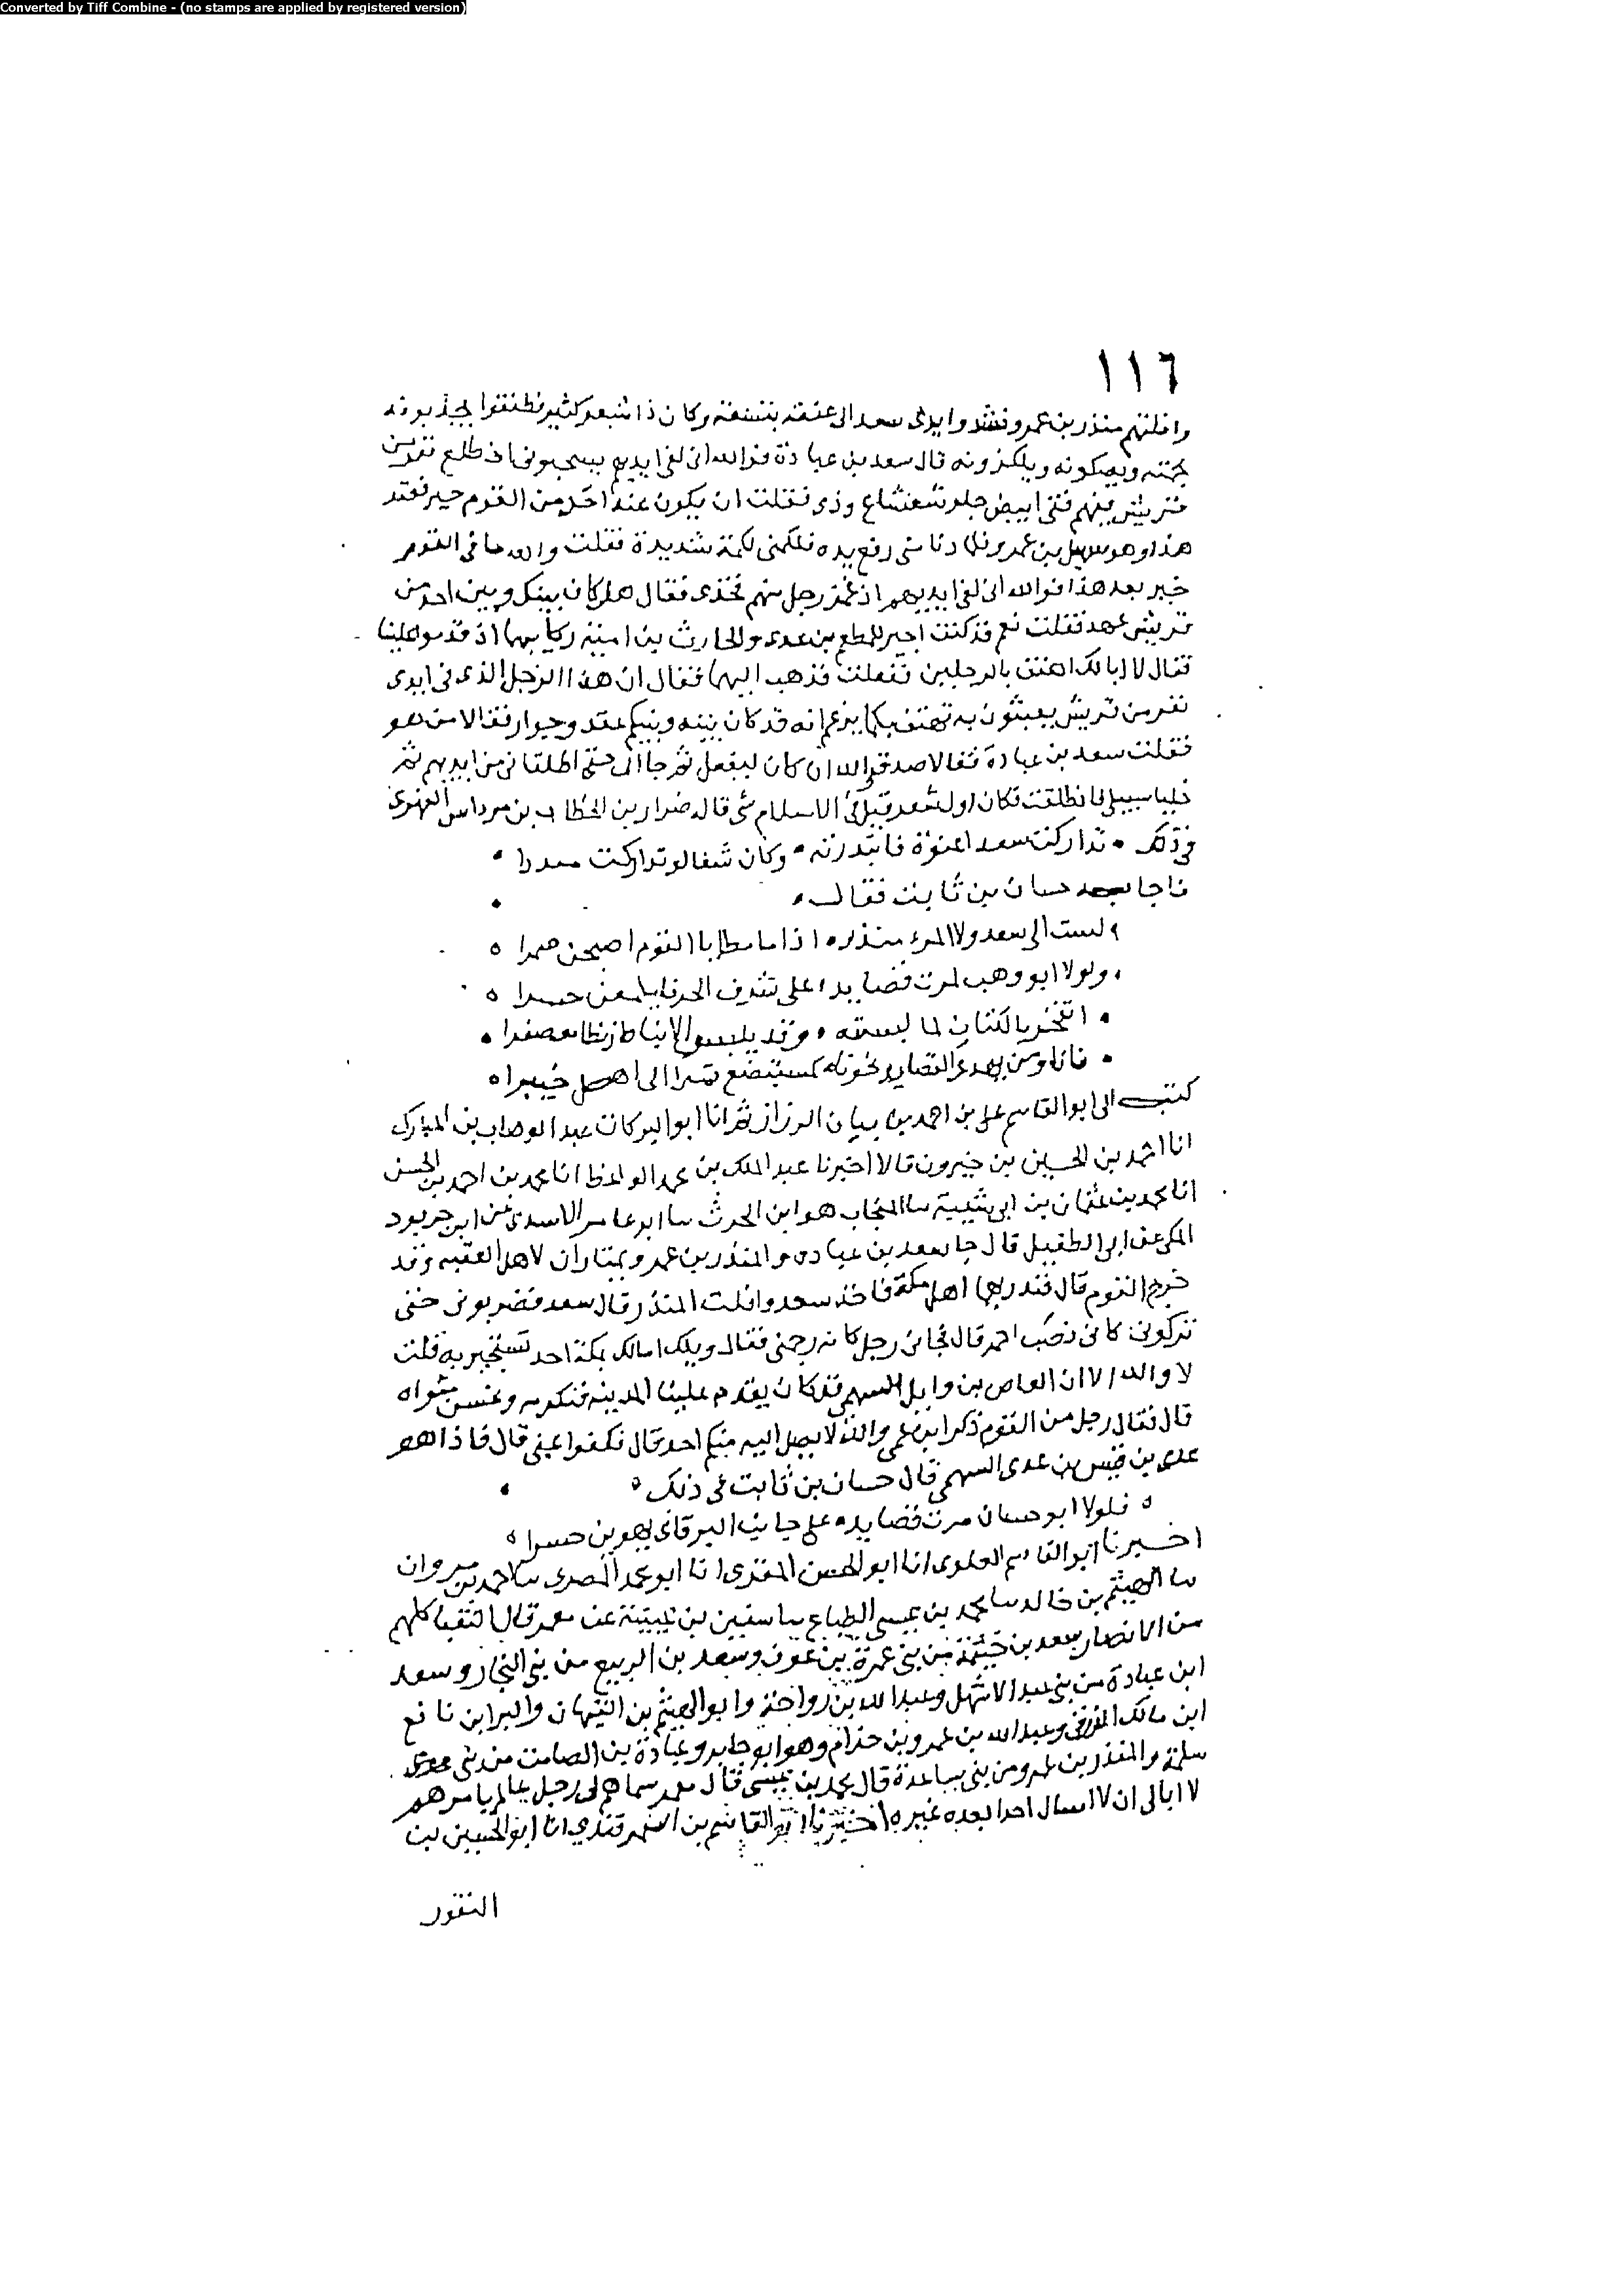 Converted by Tiff Combine - (no stamps are applied by registered version)
١١٦
وافلتهم منذر بن عمرو فشدوا يدى سعد الى عنقه بنسعة وكان ذا شعر كثير فطفقوا يجذبونه
بجمته ويصكونه ويلكزونه قال سعد بن عبادة فوالله انى لفى ايديهم يسحبونى اذ طلع نفر من
قريش فيهم فتى ابيض حلو شعشاع وذى فقلت ان يكون عند احد من القوم خير فعند
هذا وهو سهيل بن عمرو فلما دنا منى رفع يده فلكمنى لكمة شديدة فقلت والله ما فى القوم
خير بعد هذا فوالله انى لفى ايديهم اذ غمز رجل منهم فخذى فقال هل كان بينك وبين احد من
قريش عهد فقلت نعم قد كنت اجير للمطعم بن عدى والحارث بن امية ركابهما اذ قدموا علينا
فقال لا ابا لك اهتف بالرجلين ففعلت فذهب اليهما فقال ان هذا الرجل الذى فى ايدى
نفر من قريش يعبثون به تهتف بكما يزعم انه قد كان بينه وبينكم عقد وجوار فقالا من هو
فقلت سعد بن عبادة فقالا صدق والله ان كان ليفعل ثم جاآ حتى اطلقانى من ايديهم ثم
خليا سبيلى فانطلقت فكان اول شعر قيل فى الاسلام شى قاله ضرار بن الخطاب بن مرداس الفهرى
فى ذلك • تداركت سعدا عنوة فابتدرته • وكان شفا لو تداركت منذرا •
فاجابه حسان بن ثابت فقال •
لست الى سعد ولا المرء منذر • اذا ما مطايا القوم اصبحن ضمرا
ولولا ابو وهب لمرت قصايد • على شرف البرقا يلمعن حسرا
• اتفخر بالكتان لما لبسته • وقد يلبس الانباط ريطا معصفرا •
• فانا ومن يهدى القصايد نحونا كمستبضع تمرا الى اهل خيبرا
كتب الى ابو القاسم على بن احمد بن بيان الرزاز ثم انا ابو البركات عبد الوهاب بن المبارك
انا احمد بن الحسين بن خيرون قالا اخبرنا عبد الملك بن محمد الواعظ انا محمد بن احمد بن الحسن
انا محمد بن عثمان بن ابى شيبة سا المنجاب هو ابن الحرث سا ابو عامر الاسدى عن ابن خربوذ
المكى عن ابى الطفيل قال جا سعد بن عباده والمنذر بن عمرو يمتاران لاهل العقبه وقد
خرج القوم قال فنذر بهما اهل مكة فاخذ سعد وافلت المنذر قال سعد فضربونى حتى
تركونى كانى نصب احمر قال فجانى رجل كانه رحمنى فقال ويلك اما لك بمكة احد تستجير به قلت
لا والله الا ان العاص بن وايل السهمى قد كان يقدم علينا المدينه فنكرمه ونحسن مثواه
قال فقال رجل من القوم ذكر ابن عمى والله لا يصل اليه منكم احد قال فكفوا عنى قال فاذا هو
عدى بن قيس بن عدى السهمى قال حسان بن ثابت فى ذلك
فلولا ابو حسان مرت قصايد على جانب البرقا يهوين حسرا
اخبرنا ابو القاسم العلوى انا ابو الحسن المقرى انا ابو محمد المصرى سا احمد بن مروان
سا الهيثم بن خالد سا محمد بن عيسى الطباع سا سفين بن عيينة عن معمر قال النقبا كلهم
من الانصار سعد بن خيثمة من بنى عمرو بن عوف وسعد بن الربيع من بنى النجار وسعد
ابن عبادة من بنى عبد الاشهل وعبد الله بن رواحة وابو الهيثم بن التيهان والبرا بن نافع
ابن مالك وعبد الله بن عمرو بن حزام وهو ابو جابر وعبادة بن الصامت من بنى
سلمة والمنذر بن عمرو من بنى ساعدة قال محمد بن عيسى قال معمر سماهم لى رجل عالم بامرهم
لا ابالى ان لا اسال احدا بعده غيره اخبرنا ابو القاسم بن السمرقندى انا ابو الحسين بن
النقور